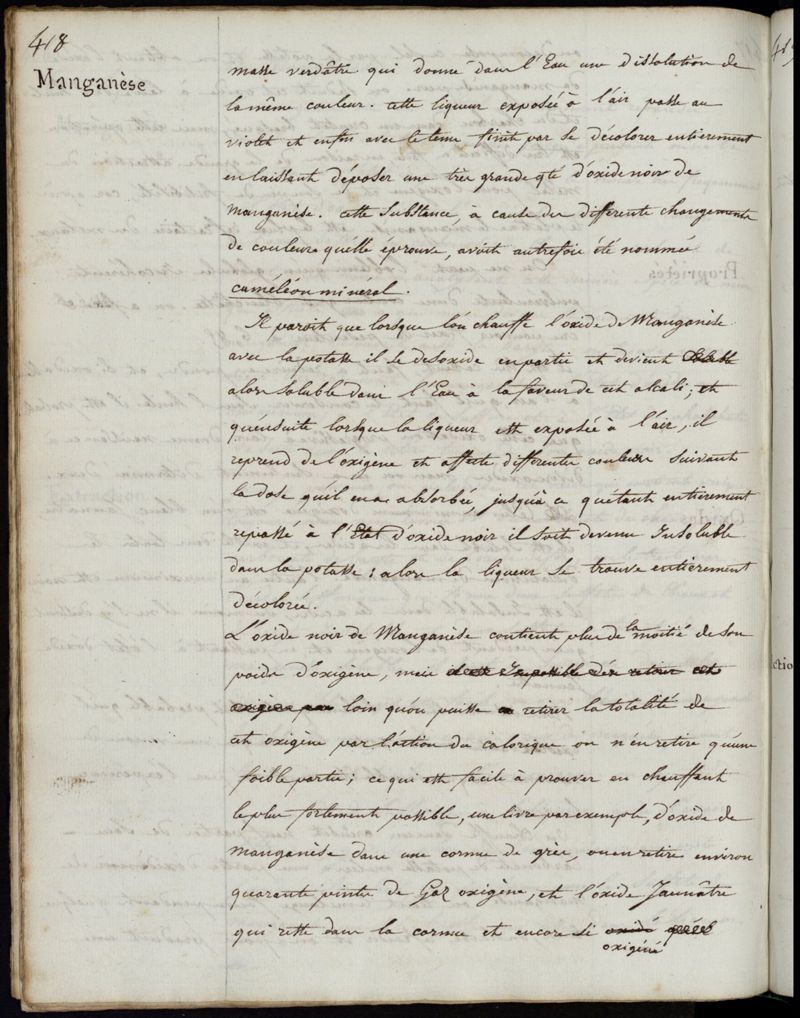 418
Manganèse
masse verdâtre qui donne dans l'Eau une dissolution de
la même couleur. cette liqueur exposée à l'air passe au
violet et enfin avec le tems finit par se décolorer entierement
en laissant déposer une très grande qté d'oxide noir de
manganèse. cette substance, à cause des differents changements
de couleurs qu'elle éprouve, avoit autrefois été nommée
caméléon minéral.
Il paroit que lorsque l'on chauffe l'oxide de Manganèse
avec la potasse il se desoxide en partie et devient
alors soluble dans l'Eau à la faveur de cet alcali; et
qu'ensuite lorsque la liqueur est exposée à l'air, il
reprend de l'oxigène et affecte differentes couleurs suivant
la dose qu'il en a absorbée, jusqu'à ce qu'étant entièrement
repassé à l'Etat d'oxide noir il soit devenu Insoluble
dans la potasse: alors la liqueur se trouve entièrement
décolorée.
L'oxide noir de Manganèse contient plus de la moitié de son
poids d'oxigène, mais il est Impossible d'en retirer cet
oxigène par loin qu'on puisse en retirer la totalité de
cet oxigène par l'action du calorique on n'en retire qu'une
foible partie; ce qui est facile à prouver en chauffant
le plus fortement possible, une livre par exemple, d'oxide de
manganèse dans une cornue de grès, on en retire environ
quarante pintes de Gaz oxigène, et l'oxide Jaunâtre
qui reste dans la cornue est encore si oxidé
oxigéné